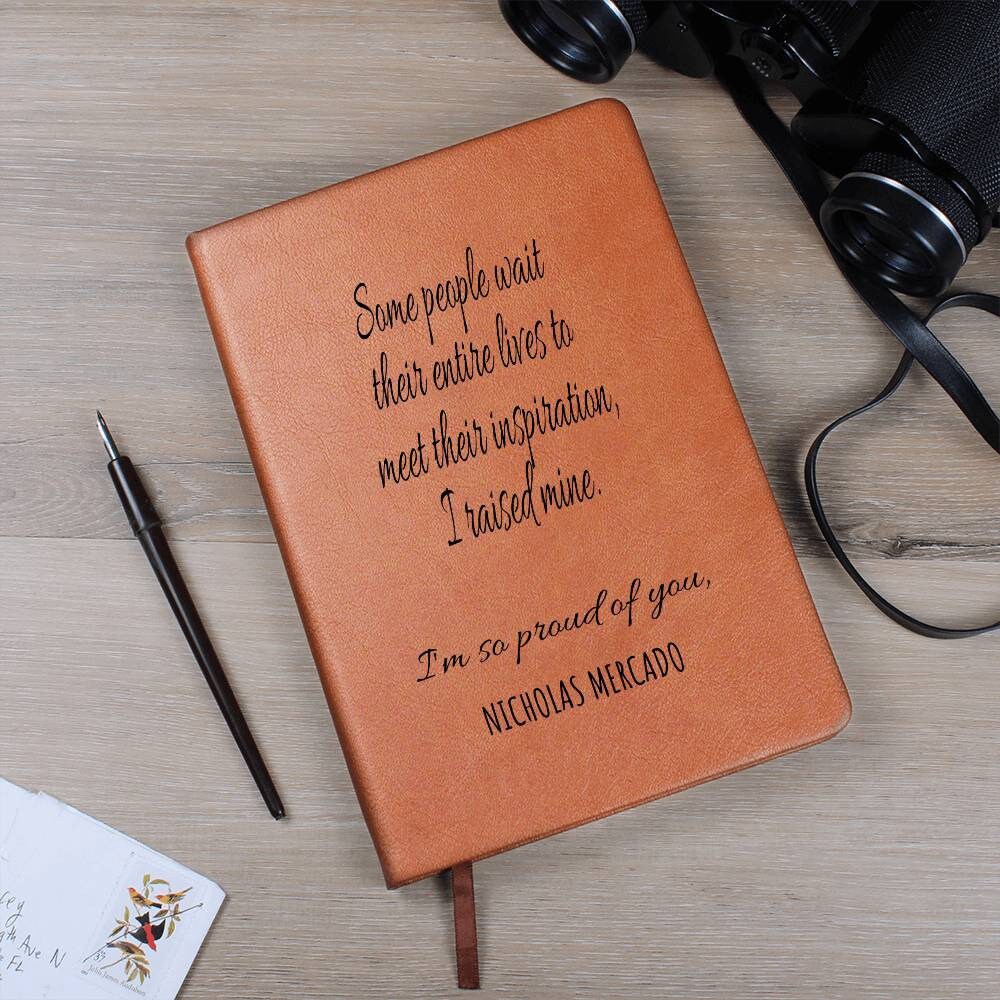 Some people wait
their entire lives to
meet their inspiration,
I raised mine.
I'm so proud of you,
NICHOLAS MERCADO
Ave N
FL
37
John James Audubon